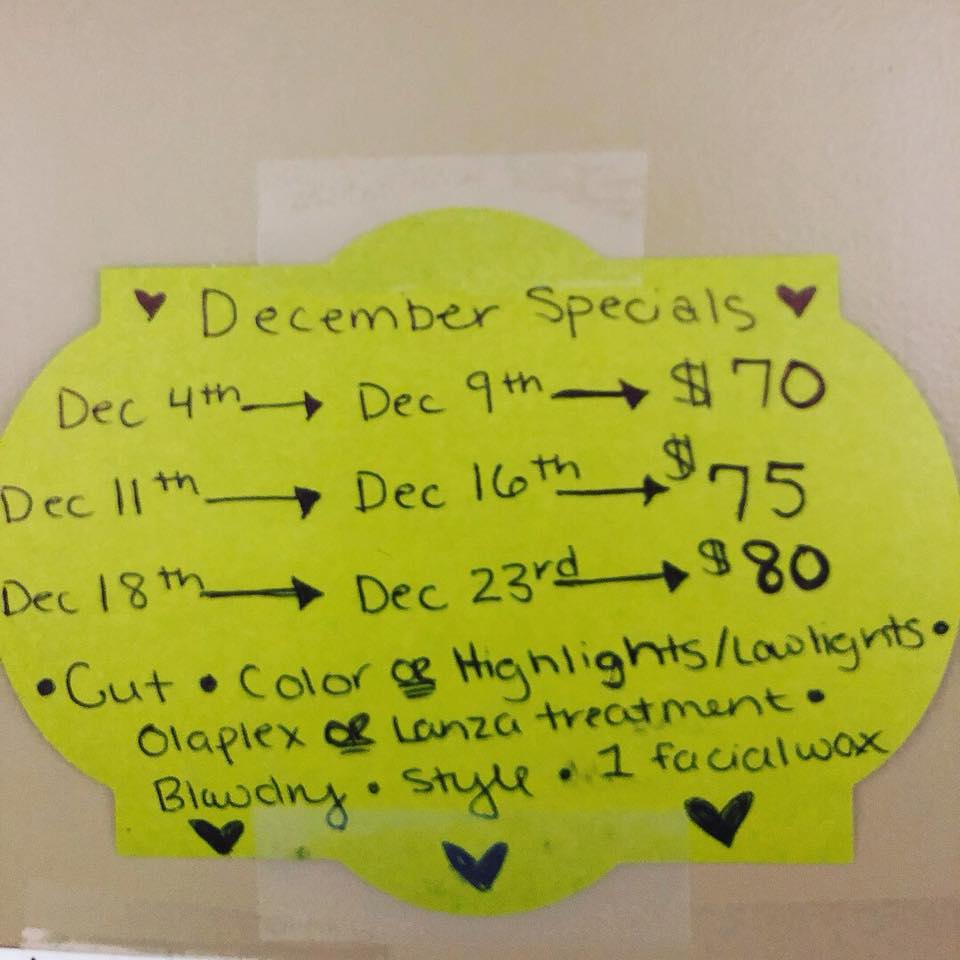 ♥ December Specials ♥
Dec 4th → Dec 9th → $70
Dec 11th → Dec 16th → $75
Dec 18th → Dec 23rd → $80
• Cut • Color OR Highlights/Lowlights •
Olaplex OR Lanza treatment •
Blowdry • Style • 1 facial wax